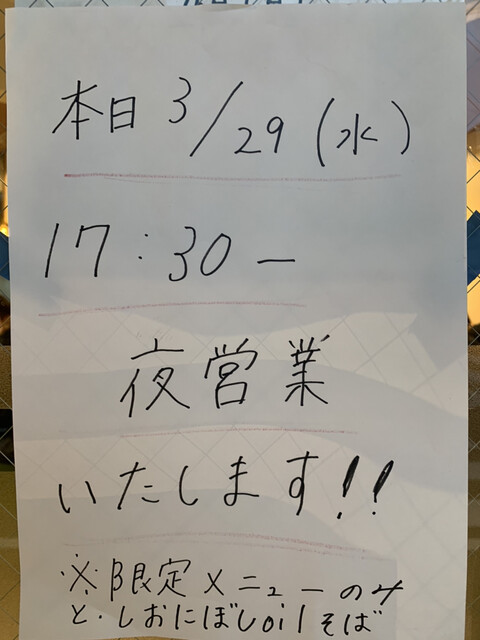 本日 3/29 (水)
17:30ー
夜営業
いたします!!
※限定メニューのみ
と・しおにぼしoilそば